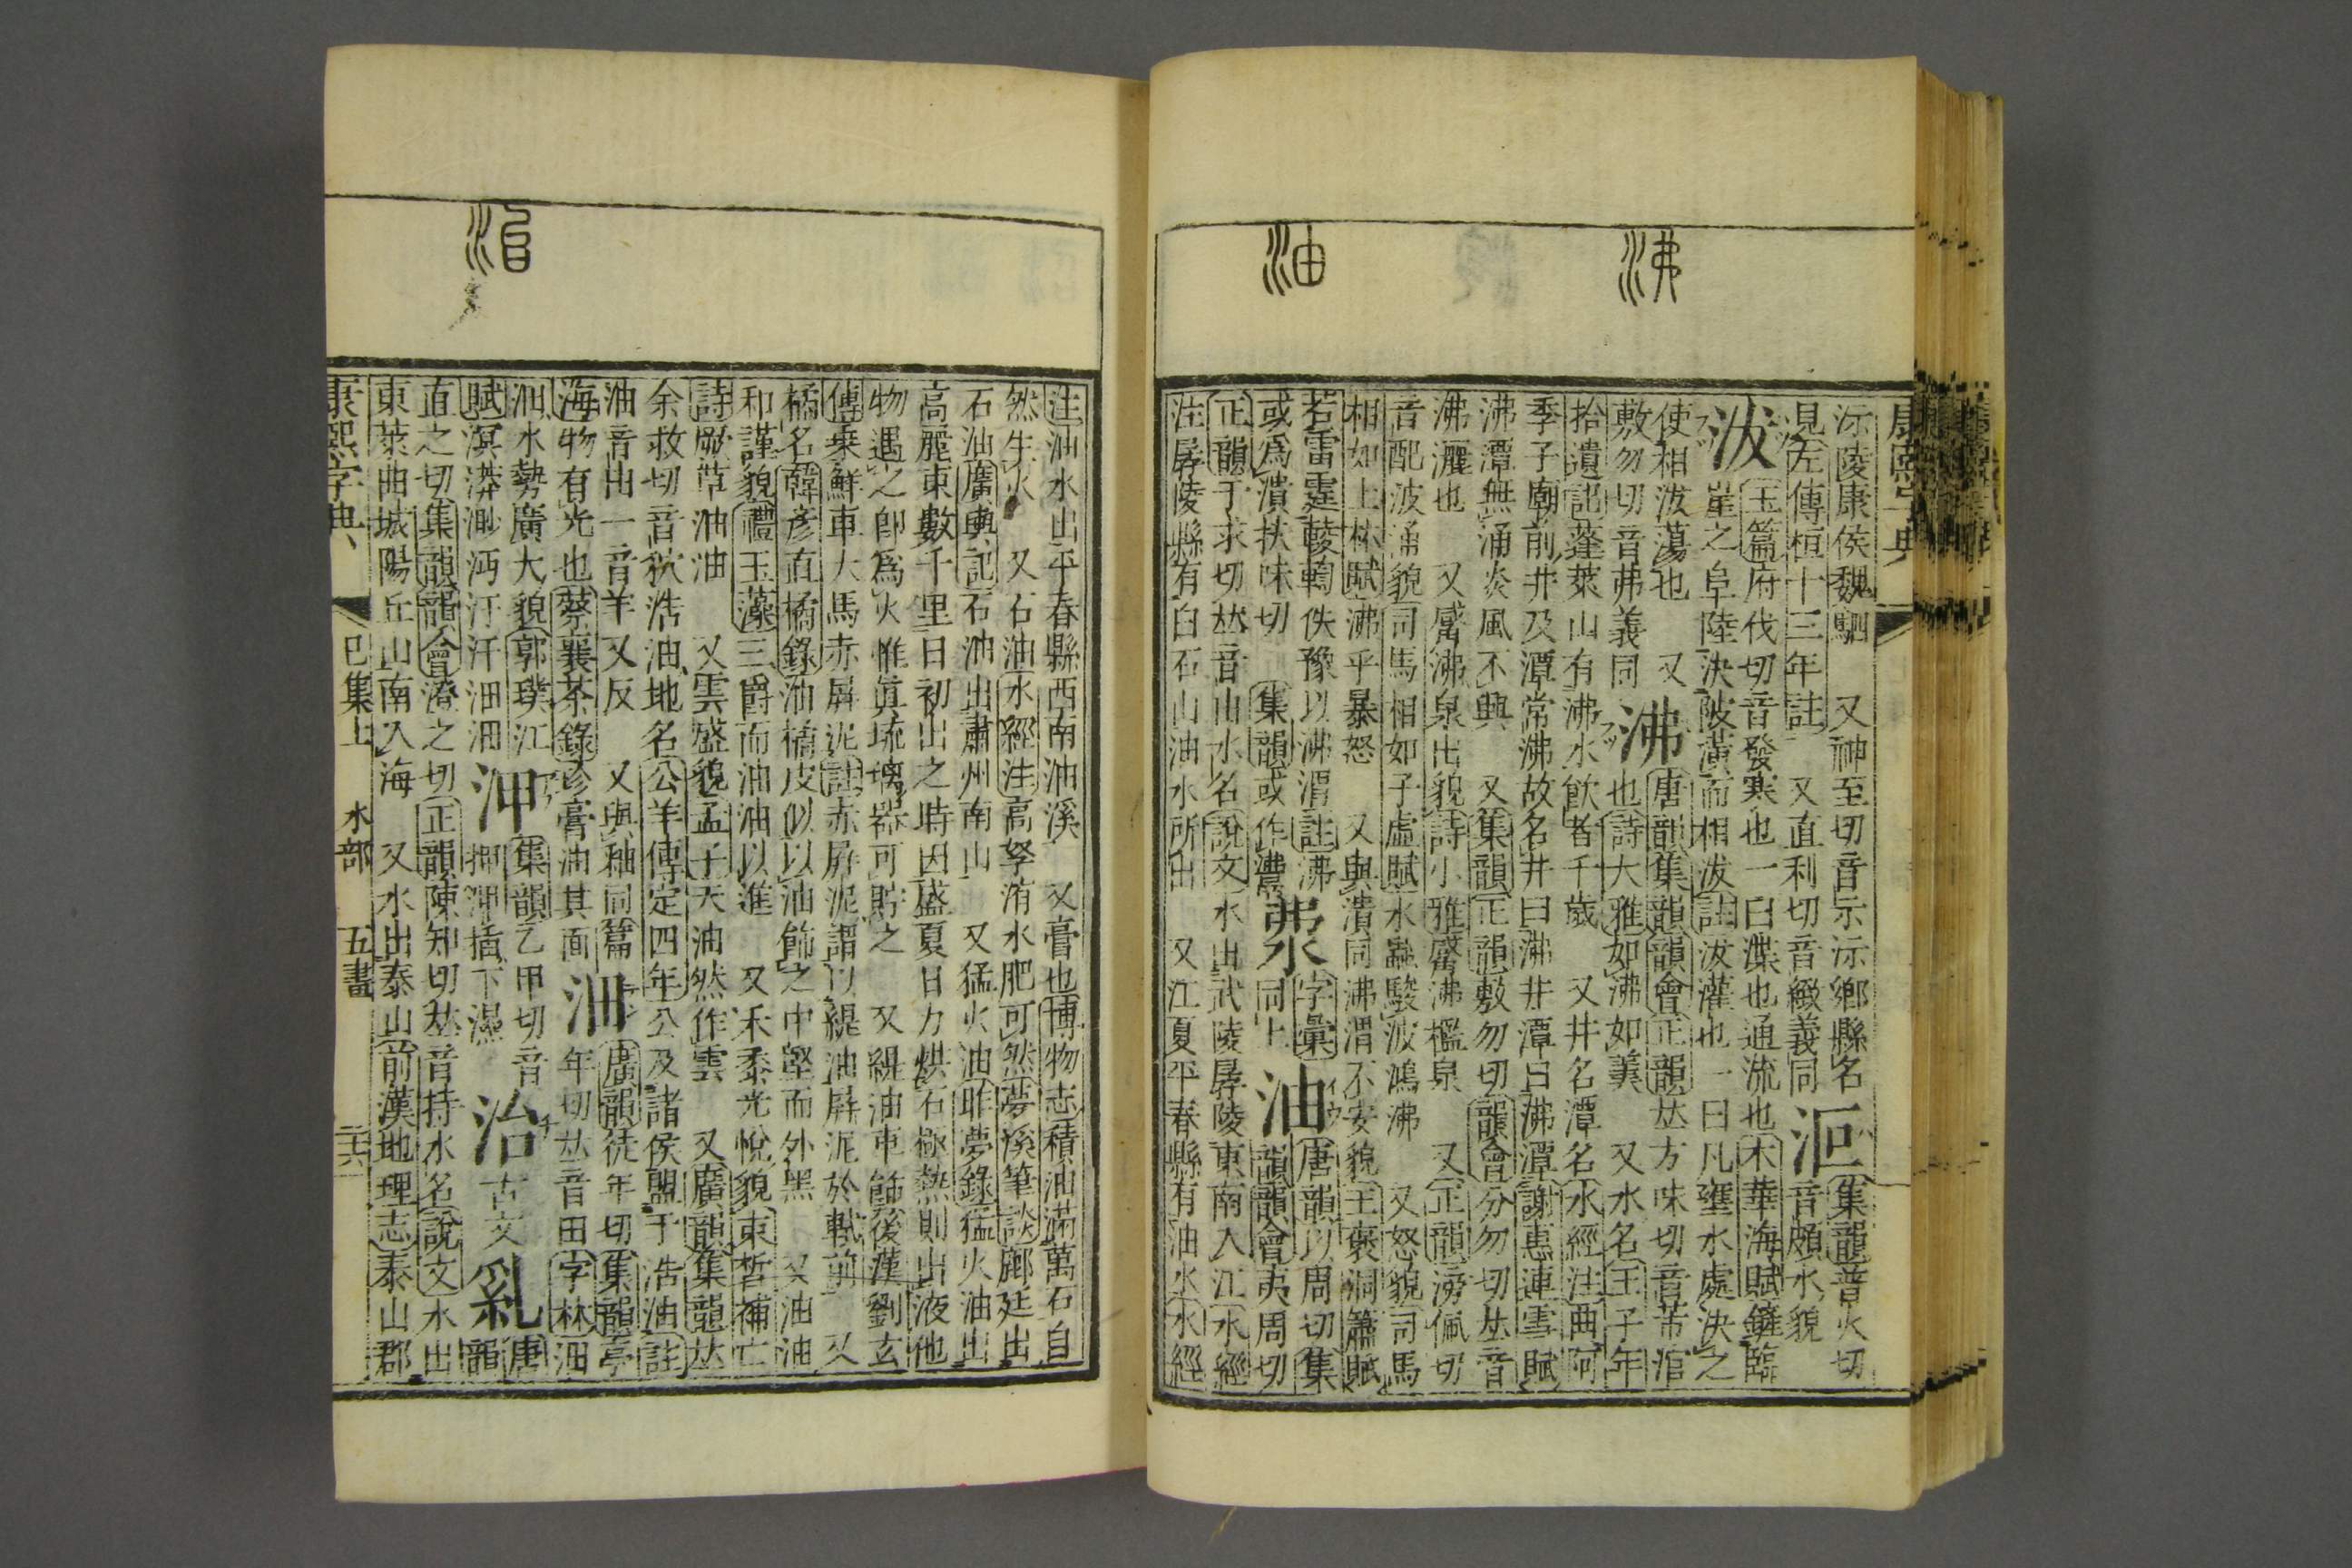 沸
油
康熙字典
泲陵康侯魏駟 又神至切音示沶鄉縣名 洰 集韻普火切
見左傳桓十三年註 又直利切音緻義同 音頗水貌
泼 玉篇府伐切音發寒也一曰渫也通流也木華海賦鏟臨
崖之阜陸決陂潢而相泼註泼灌也一曰凡壅水處決之
使相泼蕩也 又 沸 唐韻集韻韻會正韻𠀤方味切音芾涫
敷勿切音弗義同 也詩大雅如沸如羹 又水名王子年
拾遺記蓬萊山有沸水飮者千歲 又井名潭名水經注曲阿
季子廟前井及潭常沸故名井曰沸井潭曰沸潭謝惠連雪賦
沸潭無涌炎風不興 又集韻正韻敷勿切韻會分勿切𠀤音
沸灑也 又觱沸泉出貌詩小雅觱沸檻泉 又正韻滂佩切
音配波涌貌司馬相如子虛賦水蟲駿波鴻沸 又怒貌司馬
相如上林賦沸乎暴怒 又與潰同沸渭不安貌王褒洞簫賦
若雷霆輘輷佚豫以沸渭註沸 字彙 唐韻以周切集
或爲潰扶味切 集韻或作灒 㳼 同上 油 韻韻會夷周切
正韻于求切𠀤音由水名說文水出武陵孱陵東南入江水經
注孱陵縣有白石山油水所出 又江夏平春縣有油水水經
治
注油水出平春縣西南油溪 又膏也博物志積油滿萬石自
然生火 又石油水經注高孥洧水肥可然夢溪筆談鄜延出
石油廣輿記石油出肅州南山 又猛火油昨夢錄猛火油出
高麗東數千里日初出之時因盛夏日力烘石極熱則出液他
物遇之卽爲火惟眞琉璃器可貯之 又緹油車飾後漢劉玄
傳乘鮮車大馬赤屛泥註赤屛泥謂以緹油屛泥於軾前 又
橘名韓彥直橘錄油橘皮似以油飾之中堅而外黑 又油油
和謹貌禮玉藻三爵而油油以進 又禾黍光悅貌束晳補亡
詩厥草油油 又雲盛貌孟子天油然作雲 又廣韻集韻𠀤
余救切音狖浩油地名公羊傳定四年公及諸侯盟于浩油註
油音由一音羊又反 又與釉同篇 沺 廣韻徒年切集韻亭
海物有光也蔡襄茶錄珍膏油其面 年切𠀤音田字林沺
沺水勢廣大貌郭璞江 㳌 集韻乙甲切音
賦溟漭渺沔汗汗沺沺 押㳌插下濕 治 古文 乿 唐韻
直之切集韻韻會澄之切正韻陳知切𠀤音持水名說文水出
東萊曲城陽丘山南入海 又水出泰山前漢地理志泰山郡
康熙字典 巳集上 水部 五畫 二六